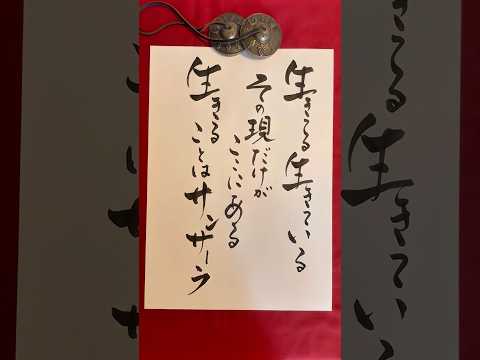 生きる生きている
その現だけが
ここにある
生きる
ことはサンサーラ